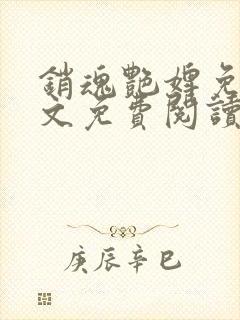 銷魂艷婢免
文免費閱讀
庚辰辛巳